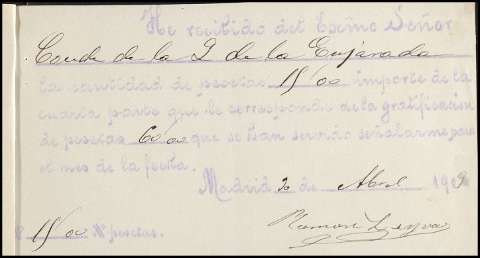 He recibido del Excmo Señor
Conde de la Q de la Enjarada
la cantidad de pesetas 15/00 importe de la
cuarta parte que le corresponde de la gratificación
de pesetas 60/00 que se han servido señalarme para
el mes de la fecha.
Madrid 20 de Abril 1909
15/00 pesetas.
Ramon